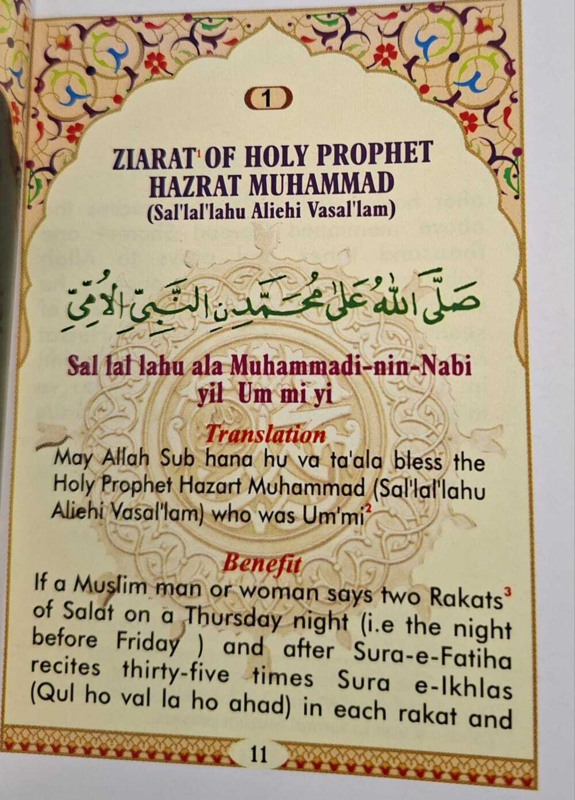 1
ZIARAT¹ OF HOLY PROPHET
HAZRAT MUHAMMAD
(Sal'lal'lahu Aliehi Vasal'lam)
صَلَّى اللهُ عَلىٰ مُحَمَّدِنِ النَّبِيِّ الْاُمِّيِّ
Sal lal lahu ala Muhammadi-nin-Nabi
yil Um mi yi
Translation
May Allah Sub hana hu va ta'ala bless the
Holy Prophet Hazart Muhammad (Sal'lal'lahu
Aliehi Vasal'lam) who was Um'mi²
Benefit
If a Muslim man or woman says two Rakats³
of Salat on a Thursday night (i.e the night
before Friday ) and after Sura-e-Fatiha
recites thirty-five times Sura e-Ikhlas
(Qul ho val la ho ahad) in each rakat and
11